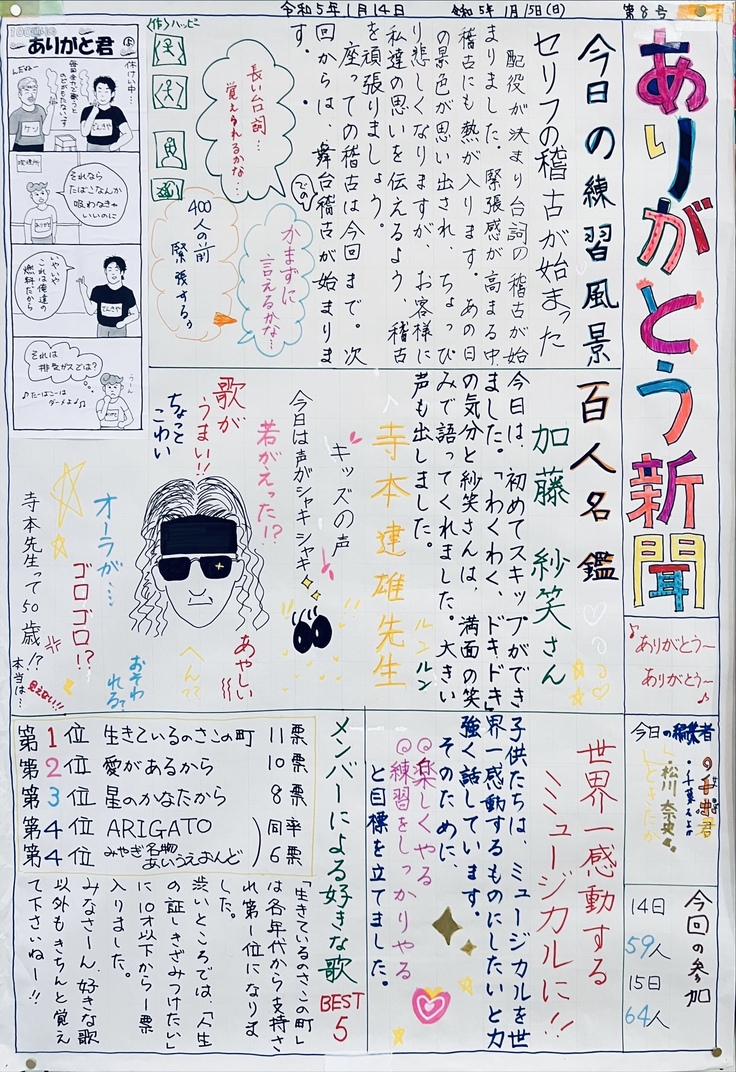 令和5年1月14日
令和5年1月15日(日)
第8号
ありがとう新聞
♪ありがとう〜
ありがとう〜♪
今日の編集者
・松川 奈央
今回の参加
14日
59人
15日
64人
今日の練習風景
セリフの稽古が始まった
配役が決まり台詞の稽古が始
まりました。緊張感が高まる中、
稽古にも熱が入ります。あの日
の景色が思い出され、ちょっぴ
り悲しくなりますが、お客様に
私達の思いを伝えるよう、稽古
を頑張りましょう。
座っての稽古は今回まで。次
回からは、舞台稽古が始まりま
す。
での
長い台詞…
覚えられるかな…
かまずに
言えるかな…
400人の前
緊張する。
〈作〉ハッピー
ありがと君
休けい中…
んだね〜
毎日全力で歌うと
のどがもたないす
ケン
さんきゅ
喫煙所
それなら
たばこなんか
吸わなきゃ
いいのに
ありがと
いやいや
これは俺達の
燃料だから
さんきゅ
それは
排気ガスでは?
うーん
♪たーばこーは
ダーメよ♪♫
百人名鑑
加藤 紗笑さん
今日は、初めてスキップができ
ました。「わくわく、ドキドキ」
の気分と紗笑さんは、満面の笑
みで語ってくれました。大きい
声も出しました。
ルンルン
寺本建雄先生
キッズの声
今日は声がシャキシャキ
若がえった!?
歌が
うまい!!
ちょっと
こわい
あやしい
へんで
おそわ
れる?
オーラが…
ゴロゴロ!?
寺本先生って50歳!?
本当は…
見えない!!
世界一感動する
ミュージカルに!!
子供たちは、ミュージカルを世
界一感動するものにしたいと力
強く話しています。
そのために、
◎楽しくやる
◎練習をしっかりやる
と目標を立てました。
メンバーによる好きな歌
BEST
5
第1位 生きているのさこの町 11票
第2位 愛があるから 10票
第3位 星のかなたから 8票
第4位 ARIGATO
第4位 みやぎ名物あいうえおんど
同率
6票
「生きているのさこの町」
は各年代から支持さ
れ第一位になりま
した。
渋いところでは、「人生
の証しきざみつけたい」
に10才以下から一票
入りました。
みなさーん、好きな歌
以外もきちんと覚え
て下さいねー!!